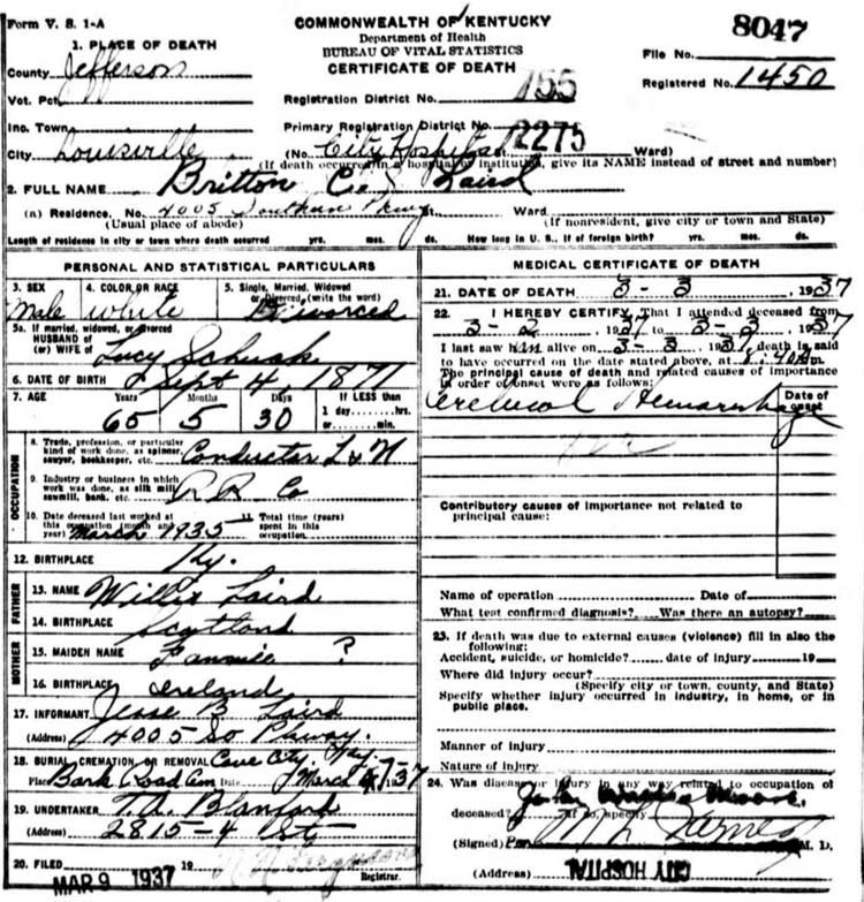 Form V. S. 1-A
COMMONWEALTH OF KENTUCKY
Department of Health
BUREAU OF VITAL STATISTICS
CERTIFICATE OF DEATH
8047
File No.
Registered No. 1450
1. PLACE OF DEATH
County Jefferson
Vot. Pct.
Inc. Town
City Louisville
Registration District No. 755
Primary Registration District No. 2275
(No. City Hospital Ward)
(If death occurred in a hospital or institution, give its NAME instead of street and number)
2. FULL NAME Britton C. Laird
(a) Residence. No. 4005 Southern Pkwy St. Ward
(Usual place of abode) (If nonresident, give city or town and State)
Length of residence in city or town where death occurred yrs. mos. ds. How long in U. S., if of foreign birth? yrs. mos. ds.
PERSONAL AND STATISTICAL PARTICULARS
3. SEX
Male
4. COLOR OR RACE
white
5. Single, Married, Widowed
or Divorced (write the word)
Divorced
5a. If married, widowed, or divorced
HUSBAND of
(or) WIFE of Lucy
6. DATE OF BIRTH Sept 4, 1871
7. AGE Years Months Days If LESS than
1 day.....hrs.
or.....min.
65 5 30
OCCUPATION
8. Trade, profession, or particular
kind of work done, as spinner,
sawyer, bookkeeper, etc. Conductor L & N
9. Industry or business in which
work was done, as silk mill,
sawmill, bank, etc. R R Co
10. Date deceased last worked at
this occupation (month and
year) March 1935
11. Total time (years)
spent in this
occupation
12. BIRTHPLACE Ky.
FATHER
13. NAME Willis Laird
14. BIRTHPLACE Scotland
MOTHER
15. MAIDEN NAME Fannie ?
16. BIRTHPLACE Ireland
17. INFORMANT Jesse B Laird
(Address) 4005 So Pkway.
18. BURIAL, CREMATION, OR REMOVAL Cave City, Ky.
Place Date March 1937
19. UNDERTAKER T. A. Blanford
(Address) 2815-4
20. FILED 19
Registrar.
MAR 9 1937
MEDICAL CERTIFICATE OF DEATH
21. DATE OF DEATH 3 - 3, 1937
22. I HEREBY CERTIFY, That I attended deceased from
3-2, 1937 to 3-3, 1937
I last saw him alive on 3-3, 1937, death is said
to have occurred on the date stated above, at m.
The principal cause of death and related causes of importance
in order of onset were as follows:
Date of
onset
Cerebral Hemorrhage
Contributory causes of importance not related to
principal cause:
Name of operation Date of
What test confirmed diagnosis? Was there an autopsy?
23. If death was due to external causes (violence) fill in also the
following:
Accident, suicide, or homicide? date of injury 19
Where did injury occur?
(Specify city or town, county, and State)
Specify whether injury occurred in industry, in home, or in
public place.
Manner of injury
Nature of injury
24. Was disease or injury in any way related to occupation of
deceased? If so, specify
(Signed) M. D.
(Address) CITY HOSPITAL